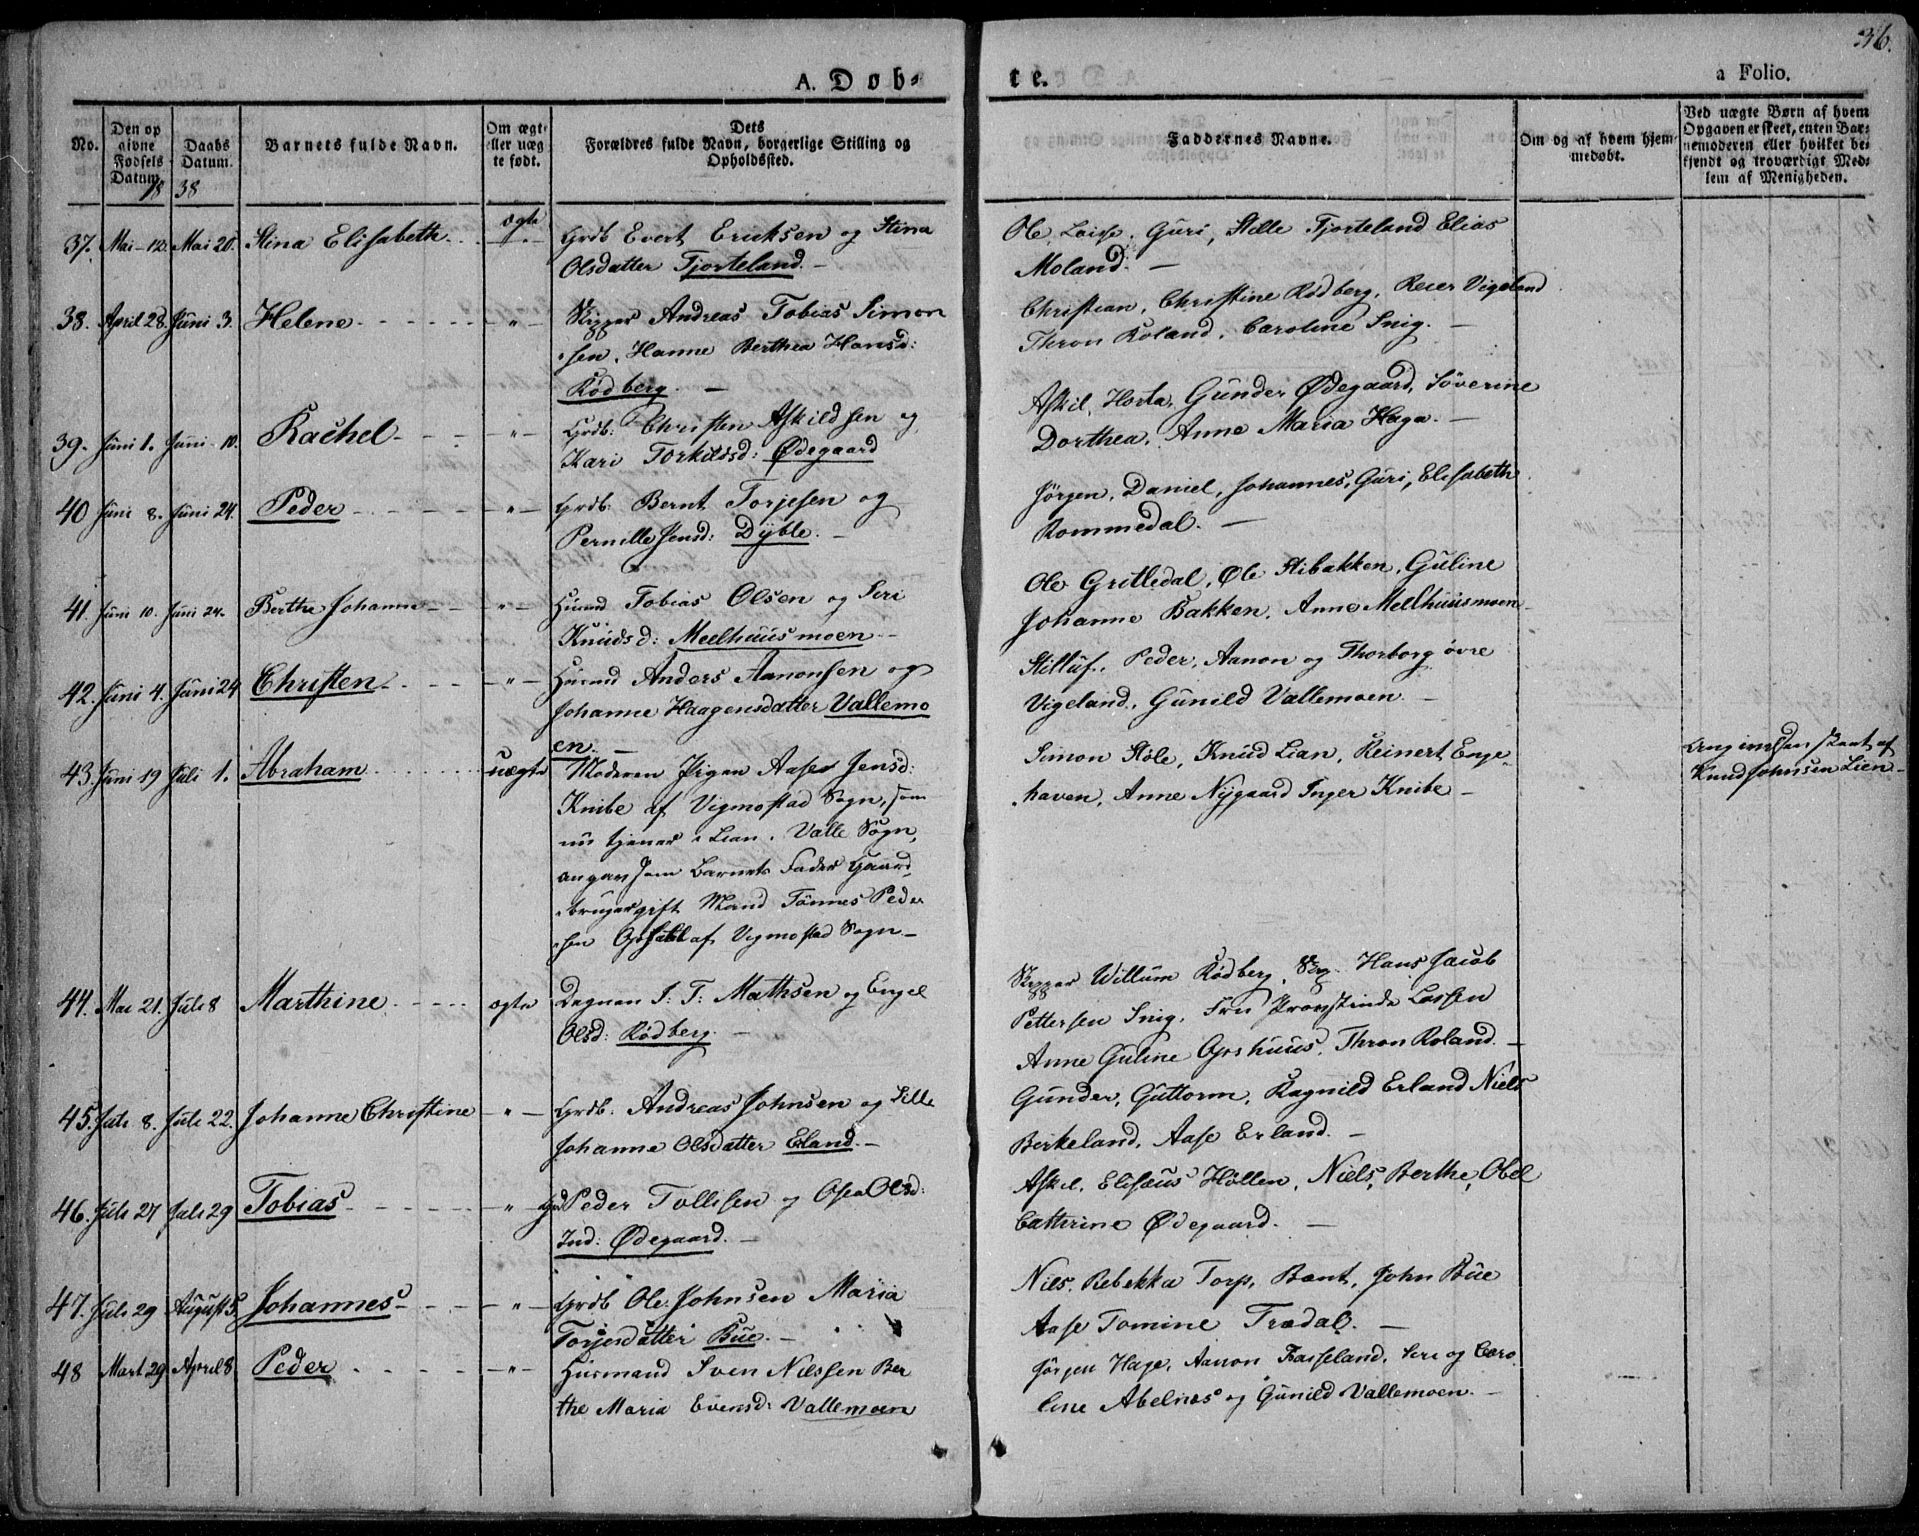 36.
A. Døb-
te.
a Folio.
No.
Den op
givne
Fødsels
Datum.
Daabs
Datum.
Barnets fulde Navn.
Om ægte
eller uæg
te født.
Dets
Forældres fulde Navn, borgerlige Stilling og
Opholdssted.
Faddernes Navne.
Om og af hvem hjem-
medøbt.
Ved uægte Børn af hvem
Opgaven er skeet, enten Bar-
nemoderen eller hvilket be-
kjendt og troværdigt Med-
lem af Menigheden.
18 38
37. Mai 12. Mai 20. Stina Elisabeth ægte Grdb Evert Eriksen og Stina
Olsdatter Tjorteland.
Ole, Guri, Tjorteland Elias
Moland.
38. April 28. Juni 3. Helene " Skipper Andreas Tobias Simon
sen, Hanne Berthea Hansd:
Rødberg.
Christian, Christine Rødberg, Reier Vigeland
Thron Roland, Caroline Snig.
39. Juni 1. Juni 10. Rachel " Grdb: Christen Askildsen og
Kari Torkildsd: Ødegaard
Askil, Gunder Ødegaard, Söverine
Dorthea, Anne Maria Haga.
40 Juni 8. Juni 24. Peder " Grdb: Bernt Torjesen og
Pernille Jensd: Dyble.
Jörgen, Daniel, Johannes, Guri, Elisabeth
Rommedal.
41. Juni 10. Juni 24. Berthe Johanne " Husmd Tobias Olsen og Seri
Knudsd: Meelhuusmoen
Ole Gritledal, Ole Stibakken, Guline
Johanne Bakken, Anne Melhuusmoen
42. Juni 4. Juni 24 Christen " Husmd Anders Aanonsen og
Johanne Haagensdatter Vallemo
en.
Peder, Aanon og Thorborg øvre
Vigeland, Gunild Vallemoen
43. Juni 19 Juli 1. Abraham uægte Moderen Pigen Aase Jensd:
Knibe af Vigmostad Sogn, som
nu tjener i Lian, Valle Sogn,
angav som Barnets Fader Gaard
bruger gift Mand Tönnes Peder
sen af Vigmostad Sogn
Simon Støle, Knud Lian, Reinert Enge-
haven, Anne Nygaard Inger Knibe
Knud Johnsen Lien
44. Mai 21. Juli 8 Marthine ægte Degnen I. T. Mathsen og Engel
Olsd: Rødberg.
Skipper Willum Rødberg, Hans Jacob
Pettersen Snig, Fru Provstinde Lassen
Anne Guline Opshuus, Thron Roland.
45. Juli 8. Juli 22. Johanne Christine " Grdb: Andreas Johnsen og Sille
Johanne Olsdatter Eland.
Gunder, Guttorm, Ragnild Erland Niels
Birkeland, Aase Erland.
46. Juli 27 Juli 29 Tobias " Grd Peder Tollisen og Osea Olsd:
Ind: Ødegaard.
Askel, Elisæus Høllen, Niels, Berthe, Obel
Catterine Ødegaard.
47. Juli 29 August 5. Johannes " Grdb Ole Johnsen Maria
Torjesdatter Bue.
Niels, Rebekka Torp, Bent, John Bue
Aase Tomine Trædal.
48 Mart 29 April 8. Peder " Husmand Sven Nilssen Ber
the Maria Evensd: Vallemoen
Jørgen Hage, Aanon Fasseland, Seri og Caro
line Abelnæs og Gunild Vallemoen.